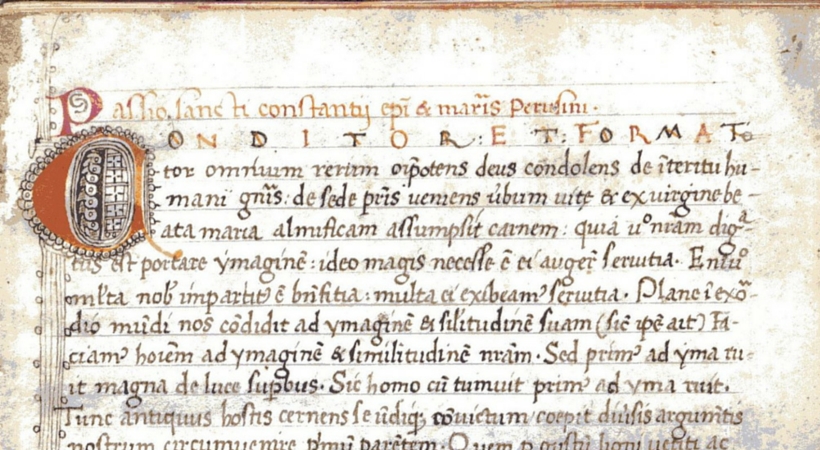 Passio. sancti constantij ep̄i & mar̄is Perusini.
CONDITOR: ET: FORMAT
tor omnium rerum oīpotens deus condolens de īteritu hu-
mani gn̄is: de sede pr̄is veniens v̄bum vite & ex virgine be-
ata maria almificam assumpsit carnem: quia uº nr̄am digᵃ
tus est portare ymaginē: ideo magis necesse ē ei auger̄ seruitia.
mlta nob̄ impartit' ē bn̄fitia: multa ei exibeam' seruitia. Plane ī exō-
dio mūdi nos cōdidit ad ymaginē & silitudinē suam (sic̄ ip̄e ait) Fa-
ciam' hoīem ad ymaginē & similitudinē nr̄am. Sed prim' ad yma ru-
it magna de luce sup̄bus. Sic homo cū tumuit prim' ad yma ruit.
Tunc antiquus hostis cernens se ūdiq; conuictum coepit diūsis argum̄tis
nostrum circumuenire p'mū parētem.